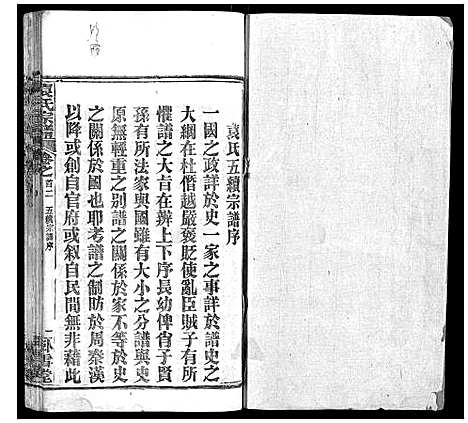 袁氏五續宗譜序
一國之政詳於史一家之事詳於譜史之
大綱在杜僭越嚴褒貶使亂臣賊子有所
懼譜之大旨在辨上下序長幼俾肖子賢
孫有所法家與國雖有大小之分譜與史
原無輕重之別譜之關係於家不等於史
之關係於國也耶考譜之制昉於周秦漢
以降或創自官府或叙自民間無非藉此
袁氏宗譜
卷之首二
五續宗譜序
一
臥雪堂